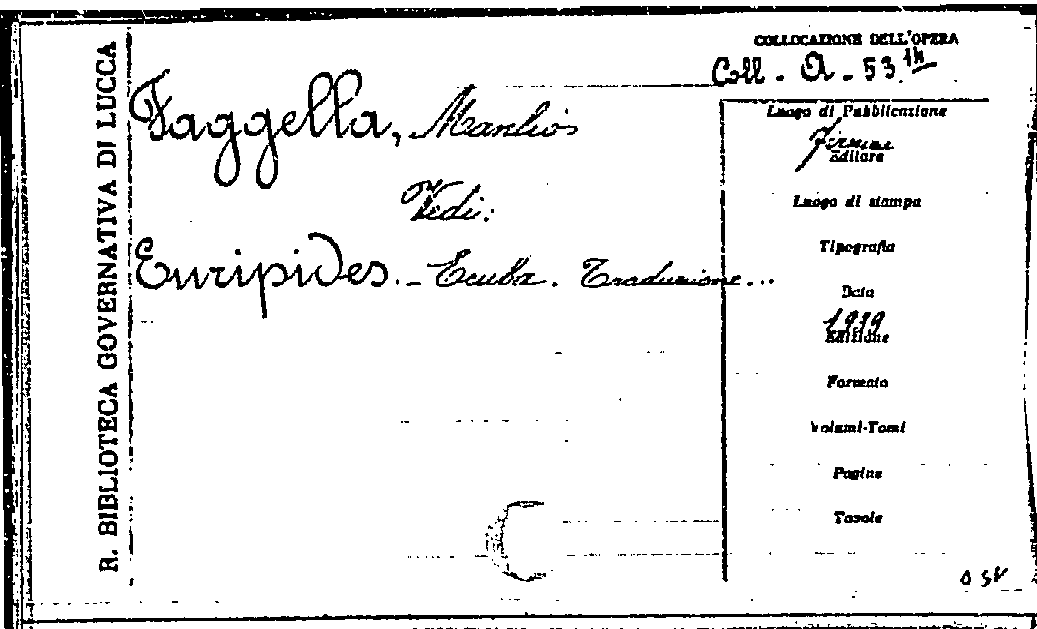 R. BIBLIOTECA GOVERNATIVA DI LUCCA
COLLOCAZIONE DELL'OPERA
Coll. A. 53
Faggella, Manlio
Vedi:
Euripides. - Ecuba. Traduzione...
Luogo di Pubblicazione
Firenze
Editore
Luogo di stampa
Tipografia
Data
1919
Edizione
Formato
Volumi-Tomi
Pagine
Tavole